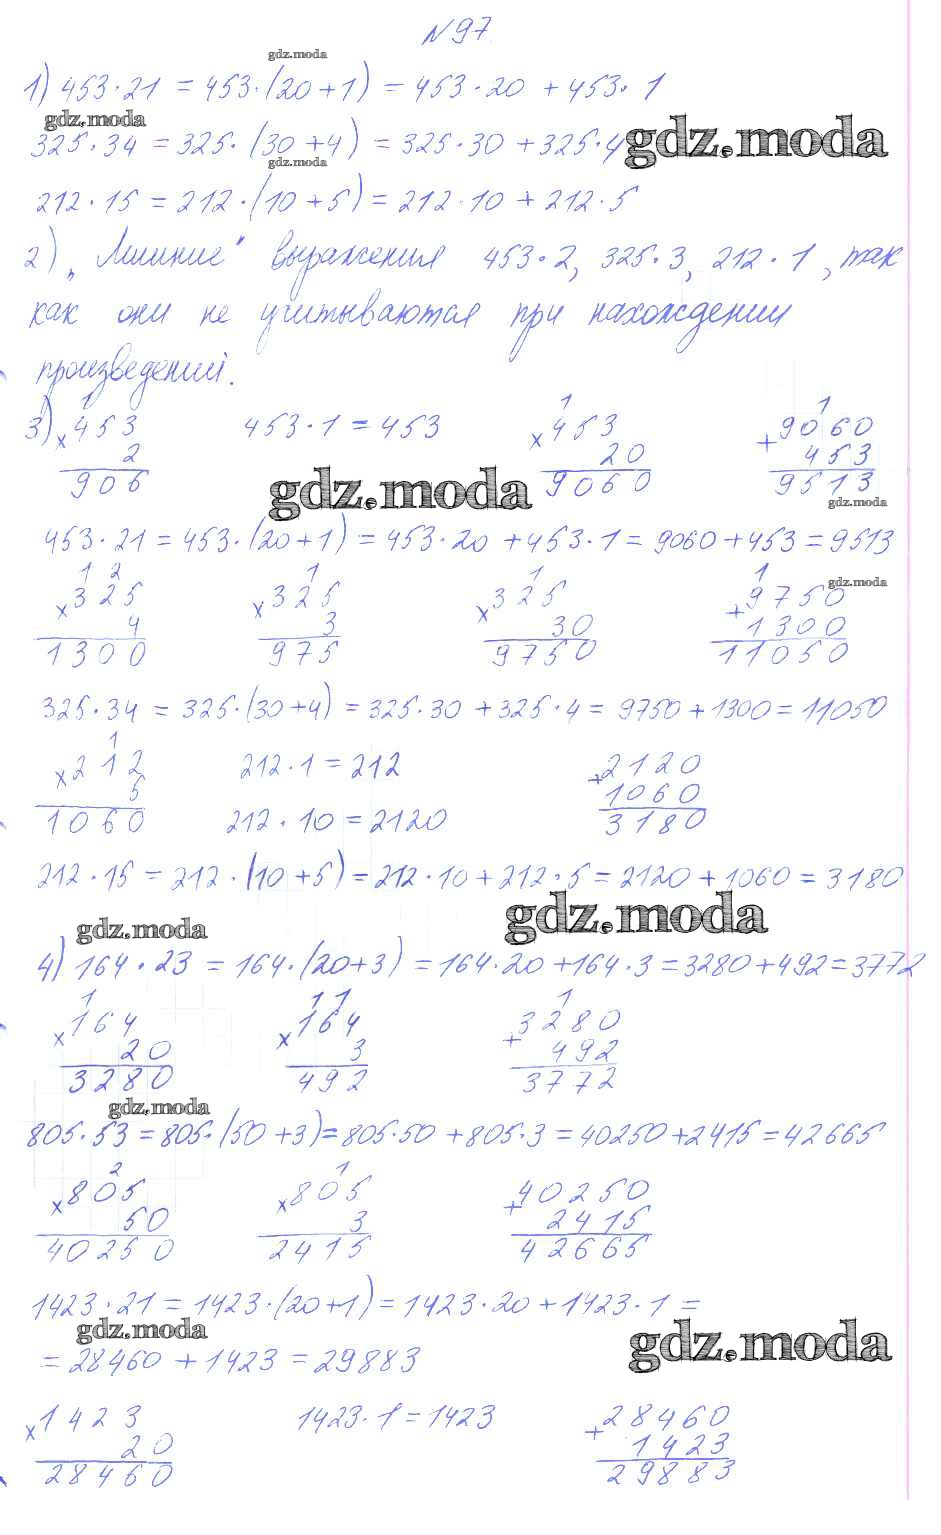 №97.
gdz.moda
1) 453·21 = 453·(20+1) = 453·20 + 453·1
gdz.moda
325·34 = 325·(30+4) = 325·30+325·4
gdz.moda
gdz.moda
212·15 = 212·(10+5) = 212·10+212·5
2) „Лишние" выражения 453·2, 325·3, 212·1, так
как они не учитываются при нахождении
произведений.
1 1 1
3) × 453 453·1 = 453 × 453 + 9060
2 20 453
906 9060 9513
gdz.moda
gdz.moda
453·21 = 453·(20+1) = 453·20 + 453·1 = 9060+453 = 9513
1 2 1 1 1
gdz.moda
× 325 × 325 × 325 + 9750
4 3 30 1300
1300 975 9750 11050
325·34 = 325·(30+4) = 325·30 + 325·4 = 9750+1300 = 11050
1
× 212 212·1 = 212 + 2120
5 1060
1060 212·10 = 2120 3180
212·15 = 212·(10+5) = 212·10+212·5 = 2120+1060 = 3180
gdz.moda
gdz.moda
4) 164·23 = 164·(20+3) = 164·20+164·3 = 3280+492 = 3772
1 11 1
× 164 × 164 + 3280
20 3 492
3280 492 3772
gdz.moda
805·53 = 805·(50+3) = 805·50+805·3 = 40250+2415 = 42665
2 1
× 805 × 805 + 40250
50 3 2415
40250 2415 42665
1423·21 = 1423·(20+1) = 1423·20+1423·1 =
gdz.moda
gdz.moda
= 28460 + 1423 = 29883
× 1423 1423·1 = 1423 + 28460
20 1423
28460 29883